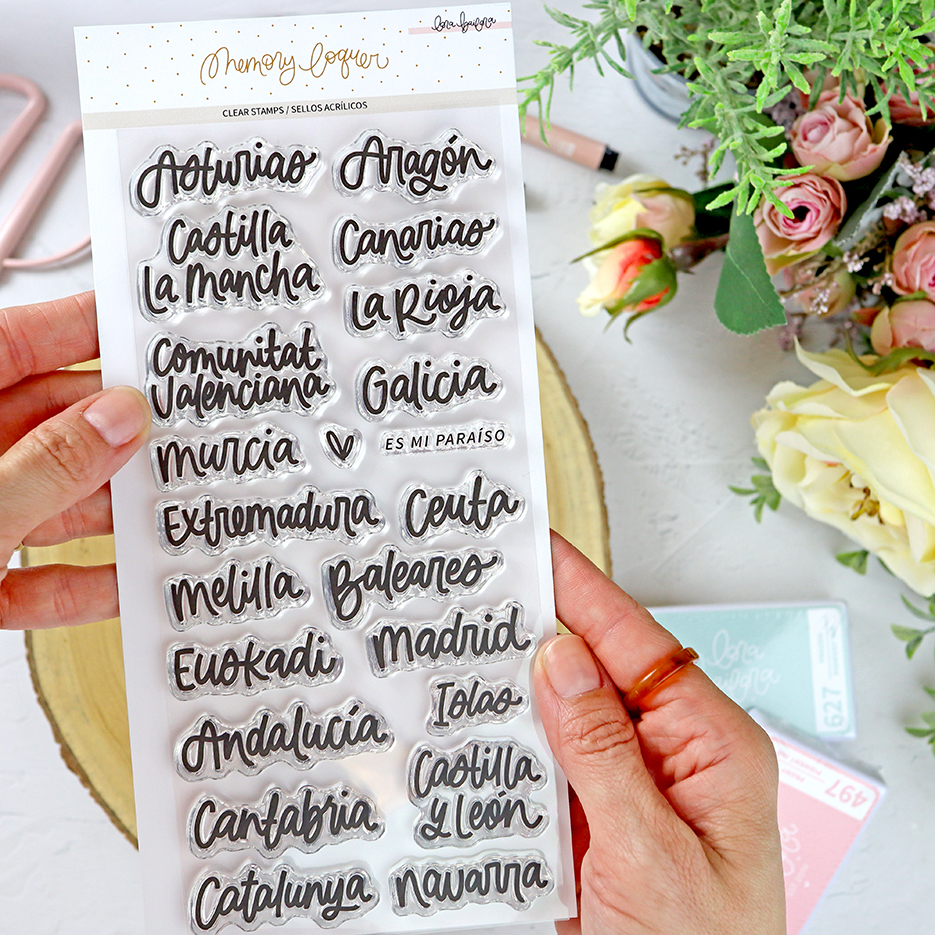 Lora Bailora
Memory loquer
CLEAR STAMPS / SELLOS ACRÍLICOS
Asturias
Aragón
Castilla
La Mancha
Canarias
La Rioja
Comunitat
Valenciana
Galicia
Murcia
ES MI PARAÍSO
Extremadura
Ceuta
Melilla
Baleares
Euskadi
Madrid
Andalucía
Islas
Castilla
y León
Cantabria
Catalunya
Navarra
lora
bailora
627
497